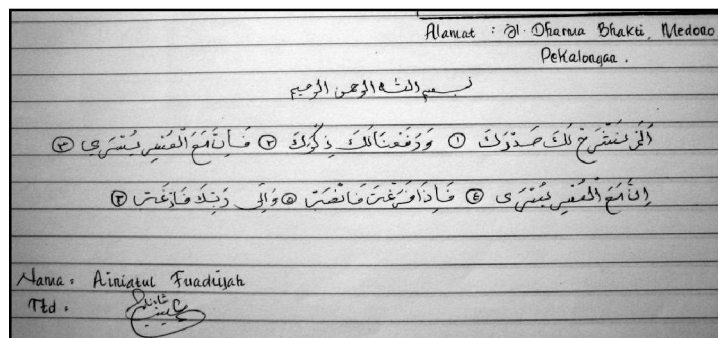 Alamat : Jl. Dharma Bhakti, Medono
Pekalongan.
بسم الله الرحمن الرحيم
اَلَمْ نَشْرَحْ لَكَ صَدْرَكَ ١ وَرَفَعْنَا لَكَ ذِكْرَكَ ٢ فَاِنَّ مَعَ الْعُسْرِ يُسْرَي ٣
اِنَّ مَعَ الْعُسْرِ يُسْرَى ٤ فَاِذَا فَرَغْتَ فَانْصَبْ ٥ وَاِلَى رَبِّكَ فَارْغَبْ ٦
Nama : Ainiatul Fuadiyah
Ttd :